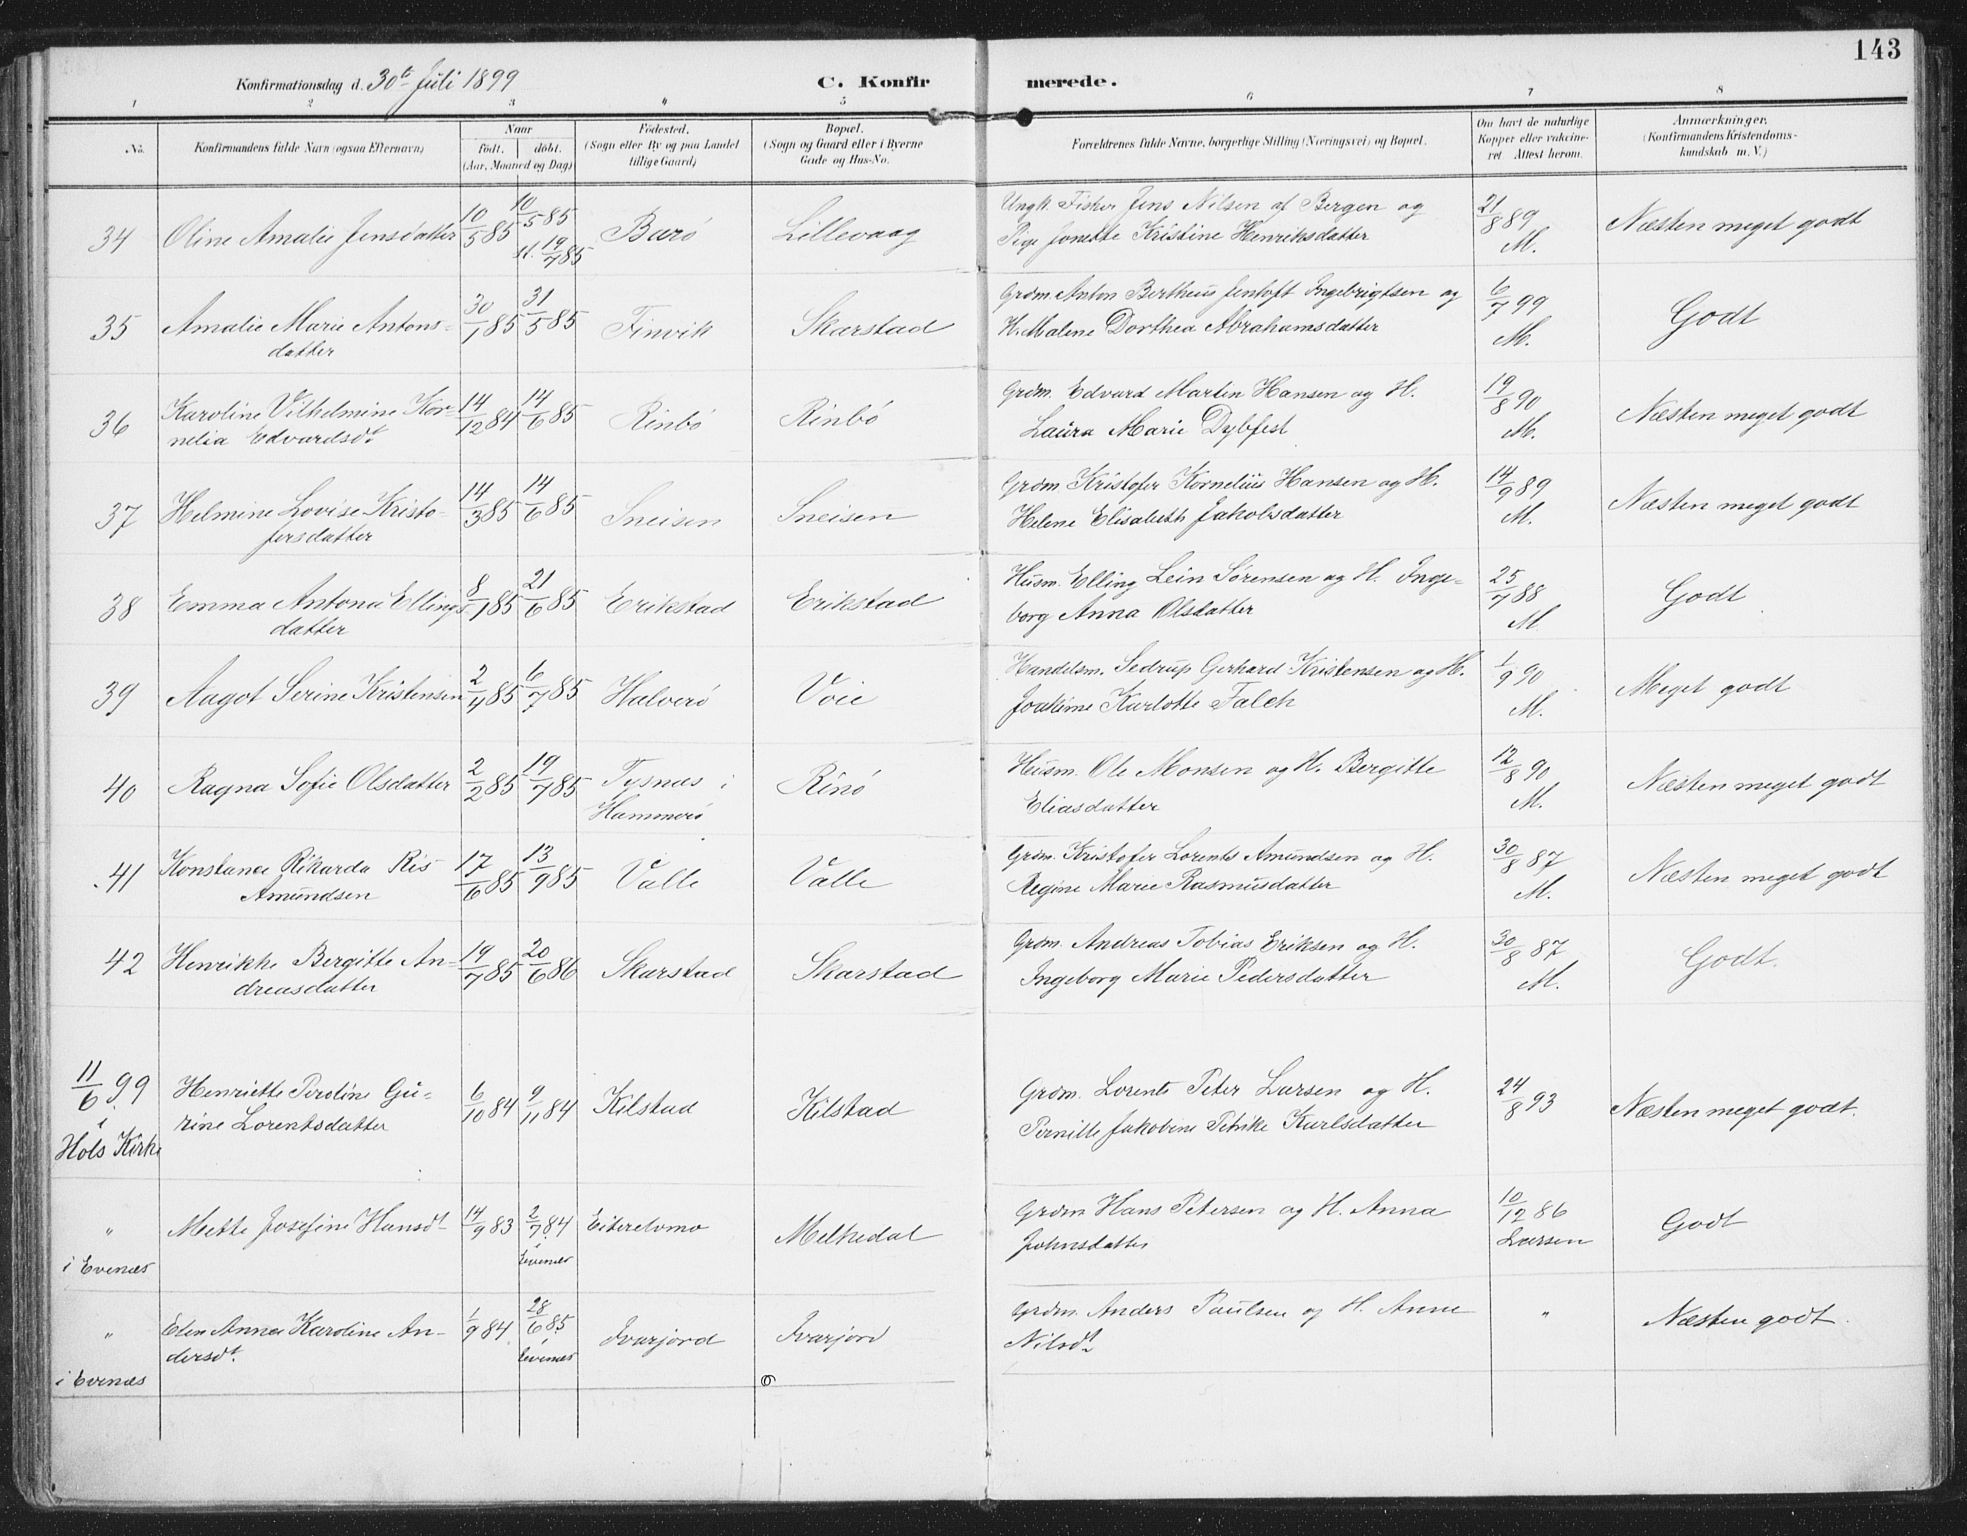 143
Konfirmationsdag d. 30te Juli 1899 C. Konfirmerede.
1 2 3 4 5 6 7 8
No. Konfirmandens fulde Navn (ogsaa Efternavn) Naar født. døbt. (Aar, Maaned og Dag) Fødested. (Sogn eller By og paa Landet tillige Gaard) Bopæl. (Sogn og Gaard eller i Byerne Gade og Hus-No. Forældrenes fulde Navne, borgerlige Stilling (Næringsvei) og Bopæl. Om havt de naturlige Kopper eller vakcineret Attest herom. Anmærkninger. (Konfirmandens Kristendomskundskab m. V.)
34 Oline Amalie Jensdatter 10/5 85 10/5 85 st. 19/7 85 Barø Lillevaag Ungk. Fisker Jens Nilsen af Bergen og 21/8 89 Næsten meget godt
Pige Jonette Kristine Henriksdatter M.
35 Amalie Marie Antons- 30/1 85 31/5 85 Finvik Skarstad Grdm. Anton Bertheus Jentoft Ingebrigtsen og 6/7 99 Godt
datter H. Malene Dorthea Abrahamsdatter M.
36 Karoline Vilhelmine Kor- 14/12 84 14/6 85 Rinbø Rinbø Grdm. Edvard Martin Hansen og H. 19/8 90 Næsten meget godt
nelia Edvardsdt Laura Marie Dybfest M.
37 Helmine Lovise Kristo- 14/3 85 14/6 85 Sneisen Sneisen Grdm. Kristofer Kornelius Hansen og H. 14/9 89 Næsten meget godt
fersdatter Helene Elisabeth Jakobsdatter M.
38 Emma Antona Ellings 8/1 85 21/6 85 Erikstad Erikstad Husm. Elling Lein Sørensen og H. Inge- 25/7 88 Godt
datter borg Anna Olsdatter M
39 Aagot Serine Kristensen 2/4 85 6/7 85 Halverø Voie Handelsm. Sedrup Gerhard Kristensen og H. 1/9 90 Meget godt
Joakime Karlotte Falch M.
40 Ragna Sofie Olsdatter 2/2 85 19/7 85 Tysnæs i Rinø Husm. Ole Monsen og H. Bergitte 12/8 90 Næsten meget godt
Hammerø Eliasdatter M.
41 Konstance Rikarda Ris 17/6 85 13/9 85 Valle Valle Grdm. Kristofer Lorents Amundsen og H. 30/8 87 Næsten meget godt
Amundsen Regine Marie Rasmusdatter M.
42 Henrikke Bergitte An- 19/7 85 20/6 86 Skarstad Skarstad Grdm. Andreas Tobias Eriksen og H. 30/8 87 Godt.
dreasdatter Ingeborg Marie Pedersdatter M.
11/6 99 Henriette Peroline Gu- 6/10 84 9/11 84 Kilstad Kilstad Grdm. Lorents Peter Larsen og H. 24/8 93 Næsten meget godt.
i rine Lorentsdatter Pernille Jakobine Petrike Karlsdatter
Hols Kirke
" Mette Josefine Hansdt 14/9 83 2/7 84 Melkedal Grdm Hans Petersen og H. Anna 10/12 86 Godt
i Evenæs i Evenæs Johnsdatter Larsen
" Elen Anna Karoline An- 1/9 84 28/6 85 Ivarjord Ivarjord Grdm. Anders Paulsen og H. Anne " Næsten godt.
dersdt. i Evenæs Nilsdt
i Evenæs